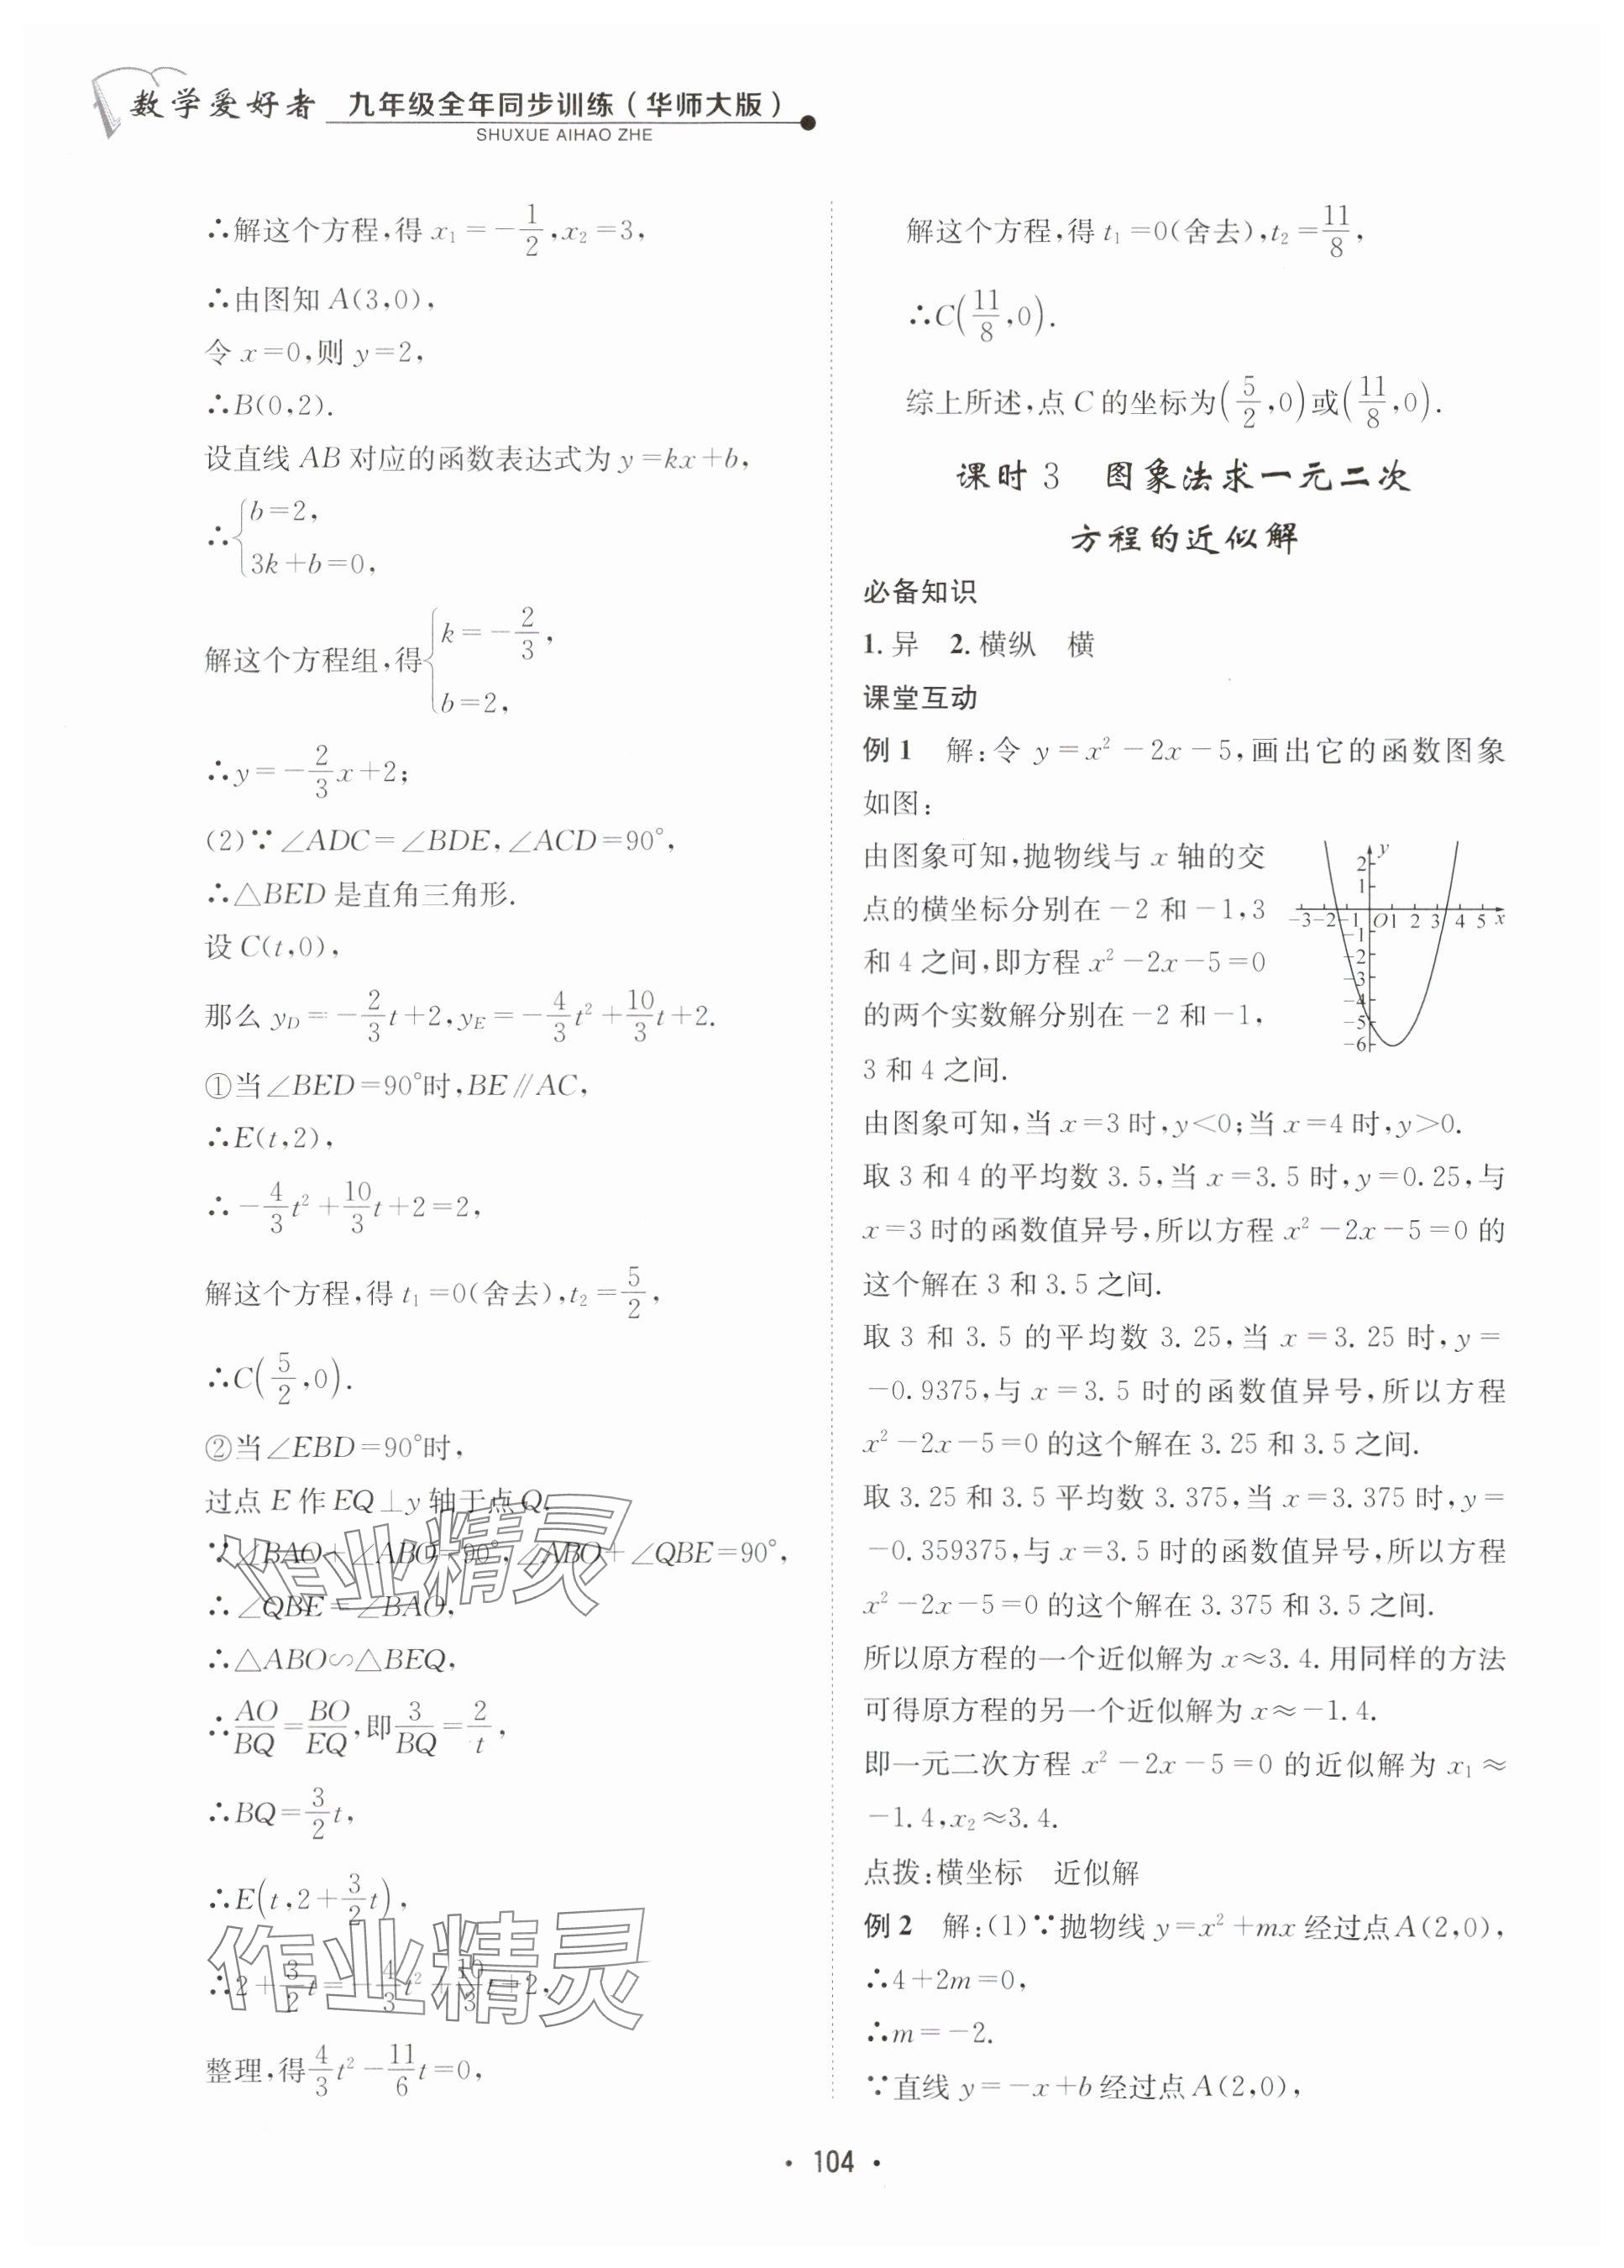 数学爱好者 九年级全年同步训练(华师大版)
SHUXUE AIHAO ZHE
∴解这个方程,得 x₁=-1/2,x₂=3,
∴由图知 A(3,0),
令 x=0,则 y=2,
∴B(0,2).
设直线 AB 对应的函数表达式为 y=kx+b,
∴{b=2,
3k+b=0,
解这个方程组,得{k=-2/3,
b=2,
∴y=-2/3x+2;
(2)∵∠ADC=∠BDE,∠ACD=90°,
∴△BED 是直角三角形.
设 C(t,0),
那么 y_D=-2/3t+2,y_E=-4/3t²+10/3t+2.
①当∠BED=90°时,BE∥AC,
∴E(t,2),
∴-4/3t²+10/3t+2=2,
解这个方程,得 t₁=0(舍去),t₂=5/2,
∴C(5/2,0).
②当∠EBD=90°时,
过点 E 作 EQ⊥y 轴于点 Q,
∵∠BAO+∠ABO=90°,∠ABO+∠QBE=90°,
∴∠QBE=∠BAO,
∴△ABO∽△BEQ,
∴AO/BQ=BO/EQ,即3/BQ=2/t,
∴BQ=3/2t,
∴E(t,2+3/2t),
∴2+3/2t=-4/3t²+10/3t+2,
整理,得4/3t²-11/6t=0,
作业精灵
作业精灵
解这个方程,得 t₁=0(舍去),t₂=11/8,
∴C(11/8,0).
综上所述,点 C 的坐标为(5/2,0)或(11/8,0).
课时 3 图象法求一元二次
方程的近似解
必备知识
1. 异 2. 横纵 横
课堂互动
例 1 解:令 y=x²-2x-5,画出它的函数图象
如图:
由图象可知,抛物线与 x 轴的交
点的横坐标分别在-2 和-1,3
和 4 之间,即方程 x²-2x-5=0
的两个实数解分别在-2 和-1,
3 和 4 之间.
y
2
1
-3 -2 -1 O 1 2 3 4 5 x
-1
-2
-3
-4
-5
-6
由图象可知,当 x=3 时,y<0;当 x=4 时,y>0.
取 3 和 4 的平均数 3.5,当 x=3.5 时,y=0.25,与
x=3 时的函数值异号,所以方程 x²-2x-5=0 的
这个解在 3 和 3.5 之间.
取 3 和 3.5 的平均数 3.25,当 x=3.25 时,y=
-0.9375,与 x=3.5 时的函数值异号,所以方程
x²-2x-5=0 的这个解在 3.25 和 3.5 之间.
取 3.25 和 3.5 平均数 3.375,当 x=3.375 时,y=
-0.359375,与 x=3.5 时的函数值异号,所以方程
x²-2x-5=0 的这个解在 3.375 和 3.5 之间.
所以原方程的一个近似解为 x≈3.4. 用同样的方法
可得原方程的另一个近似解为 x≈-1.4.
即一元二次方程 x²-2x-5=0 的近似解为 x₁≈
-1.4,x₂≈3.4.
点拨:横坐标 近似解
例 2 解:(1)∵抛物线 y=x²+mx 经过点 A(2,0),
∴4+2m=0,
∴m=-2.
∵直线 y=-x+b 经过点 A(2,0),
· 104 ·